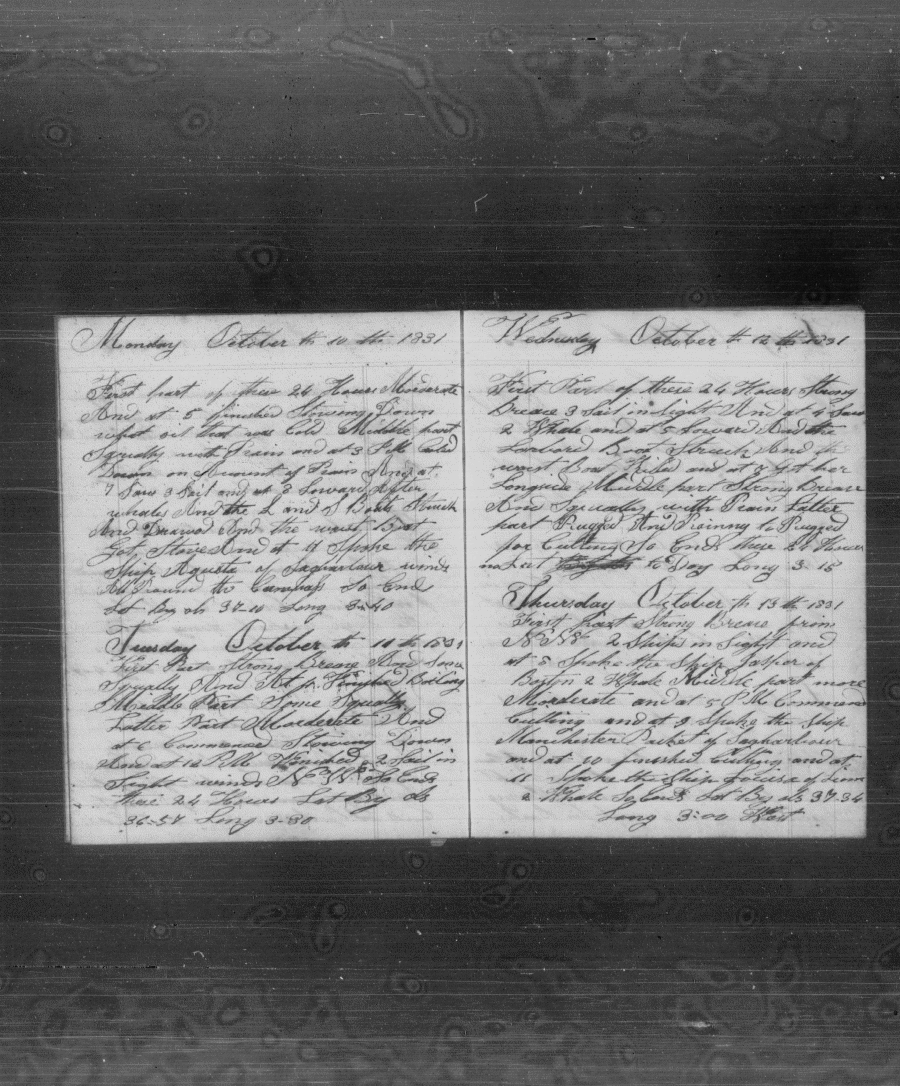 Monday October th 10 th 1831
First part of these 24 Hours Moderate
And at 5 finished Stowing Down
what oil that was Cold Middle part
Squally with Rain and at 3 P M
Down on account of Rain And at
7 Saw 3 Sail and at 8 Lowared After
whales And the L and S Boats Struck
And Drawed And the waist Boat
Got Stove And at 11 Spoke the
Ship Agusta of Sagharbour winds
All Round the Compass So Ends
Lat By ob 37-10 Long 3-40
Tuesday October th 11 th 1831
First Part Strong Breaze And Some
Squally And At Finished Boiling
Middle Part Some Squally
Latter Part Morderate And
at 6 Commenced Stowing Down
And at 12 P M Finished 2 Sail in
Sight winds N N W So Ends
these 24 Hours Lat By ob
36-57 Long 3-30
Wednesday October th 12 th 1831
First Part of these 24 Hours Strong
Breaze 3 Sail in Sight And at 4 Saw
2 Whale and at 5 Lowared And the
Larbord Boat Struck And the
waist Boat Killed and at 8 Got her
Longside Middle part Strong Breaze
And Squally with Rain Latter
part Rugged And Rainny to Rugged
for Cutting So Ends these 24 Hours
no Lat to Day Long 3-15
Thursday October th 13 th 1831
First part Strong Breaze from
N N W 2 Ships in Sight and
at 5 Spoke the Ship Jasper of
Boston 2 Whale Middle part more
Morderate and at 5 P M Commenced
Cutting and at 9 Spoke the Ship
Manchester Packet of Sagharbour
and at 10 finished Cutting and at
11 Spoke the Ship of
2 Whale So Ends Lat By ob 37-34
Long 3:00 West